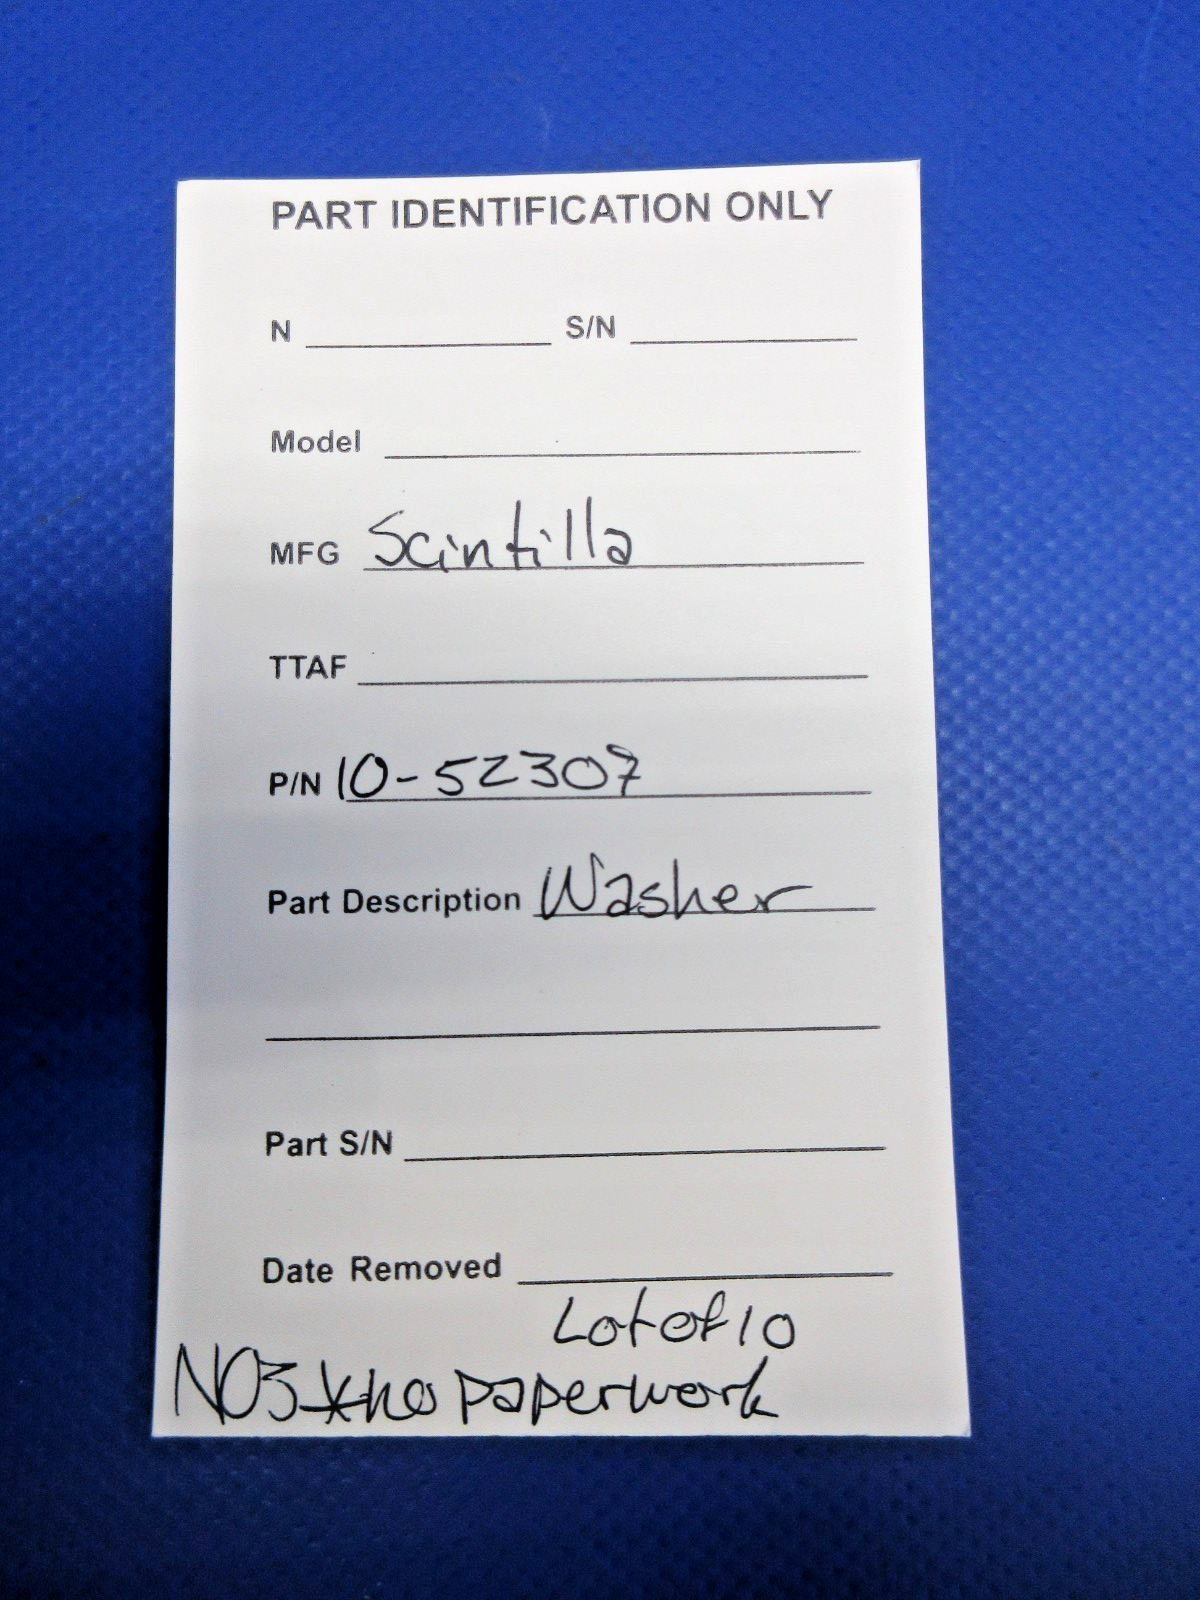 PART IDENTIFICATION ONLY
N S/N
Model
MFG Scintilla
TTAF
P/N 10-52307
Part Description Washer
Part S/N
Date Removed
Lot of 10
NO3 *no paperwork